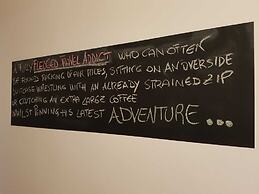 A FULLY FLEDGED TRAVEL ADDICT WHO CAN OFTEN
BE FOUND RACKING UP AIR MILES, SITTING ON AN OVERSIDE
SUITCASE WRESTLING WITH AN ALREADY STRAINED ZIP
OR CLUTCHING AN EXTRA LARGE COFFEE
WHILST PLANNING HIS LATEST ADVENTURE ...